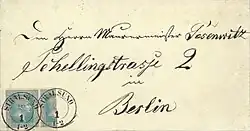 Dem Herrn Maurermeister Posenwitz
Schellingstrasse 2
in
Berlin
STRALSUND
1
1-2
STRALSUND
1
1-2